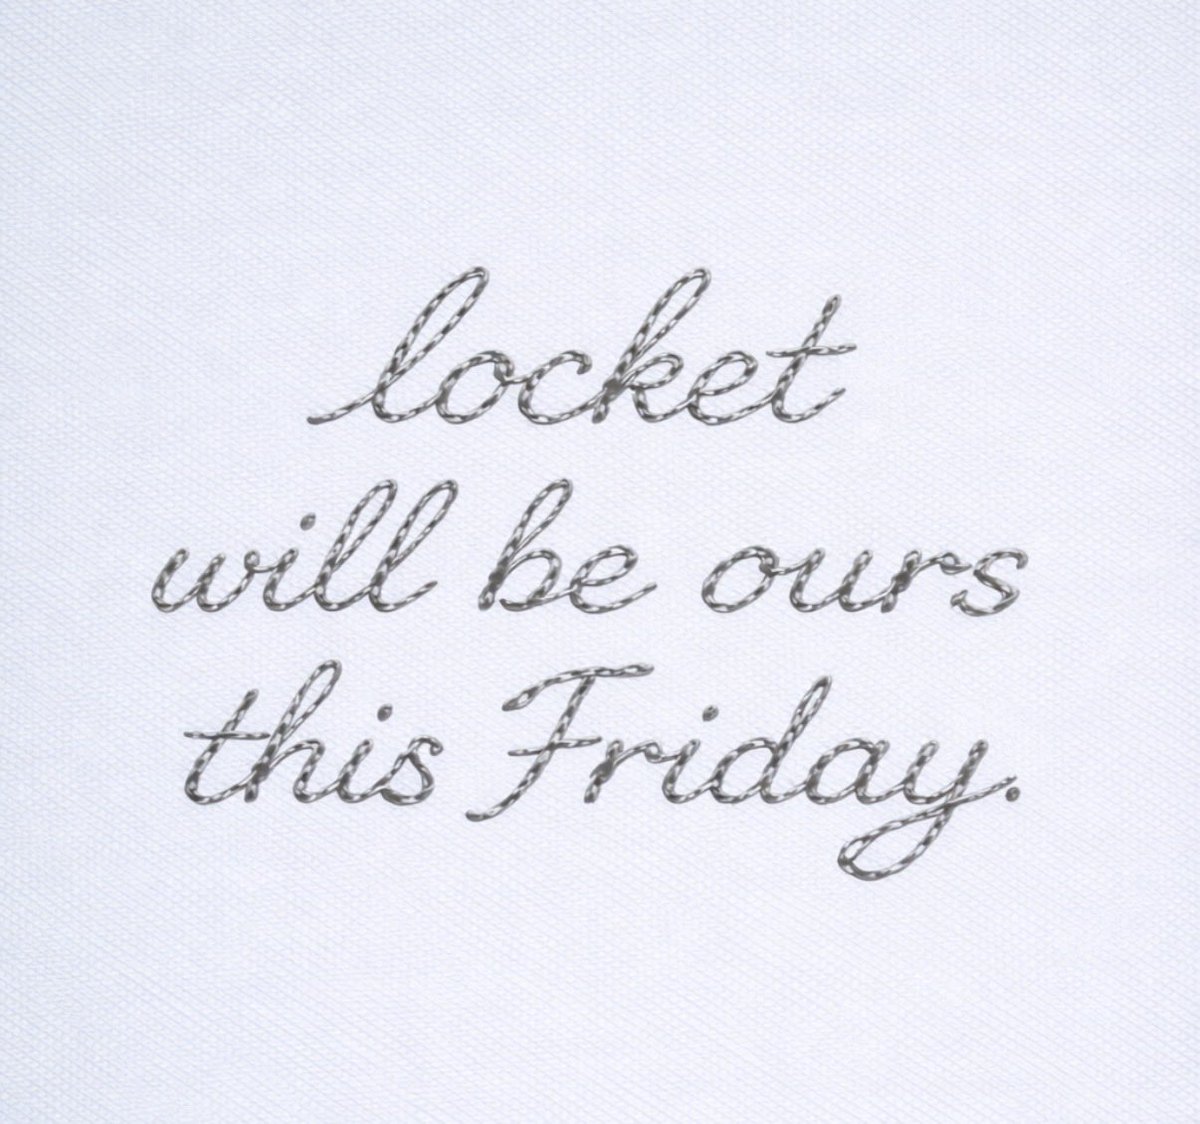 locket
will be ours
this Friday.